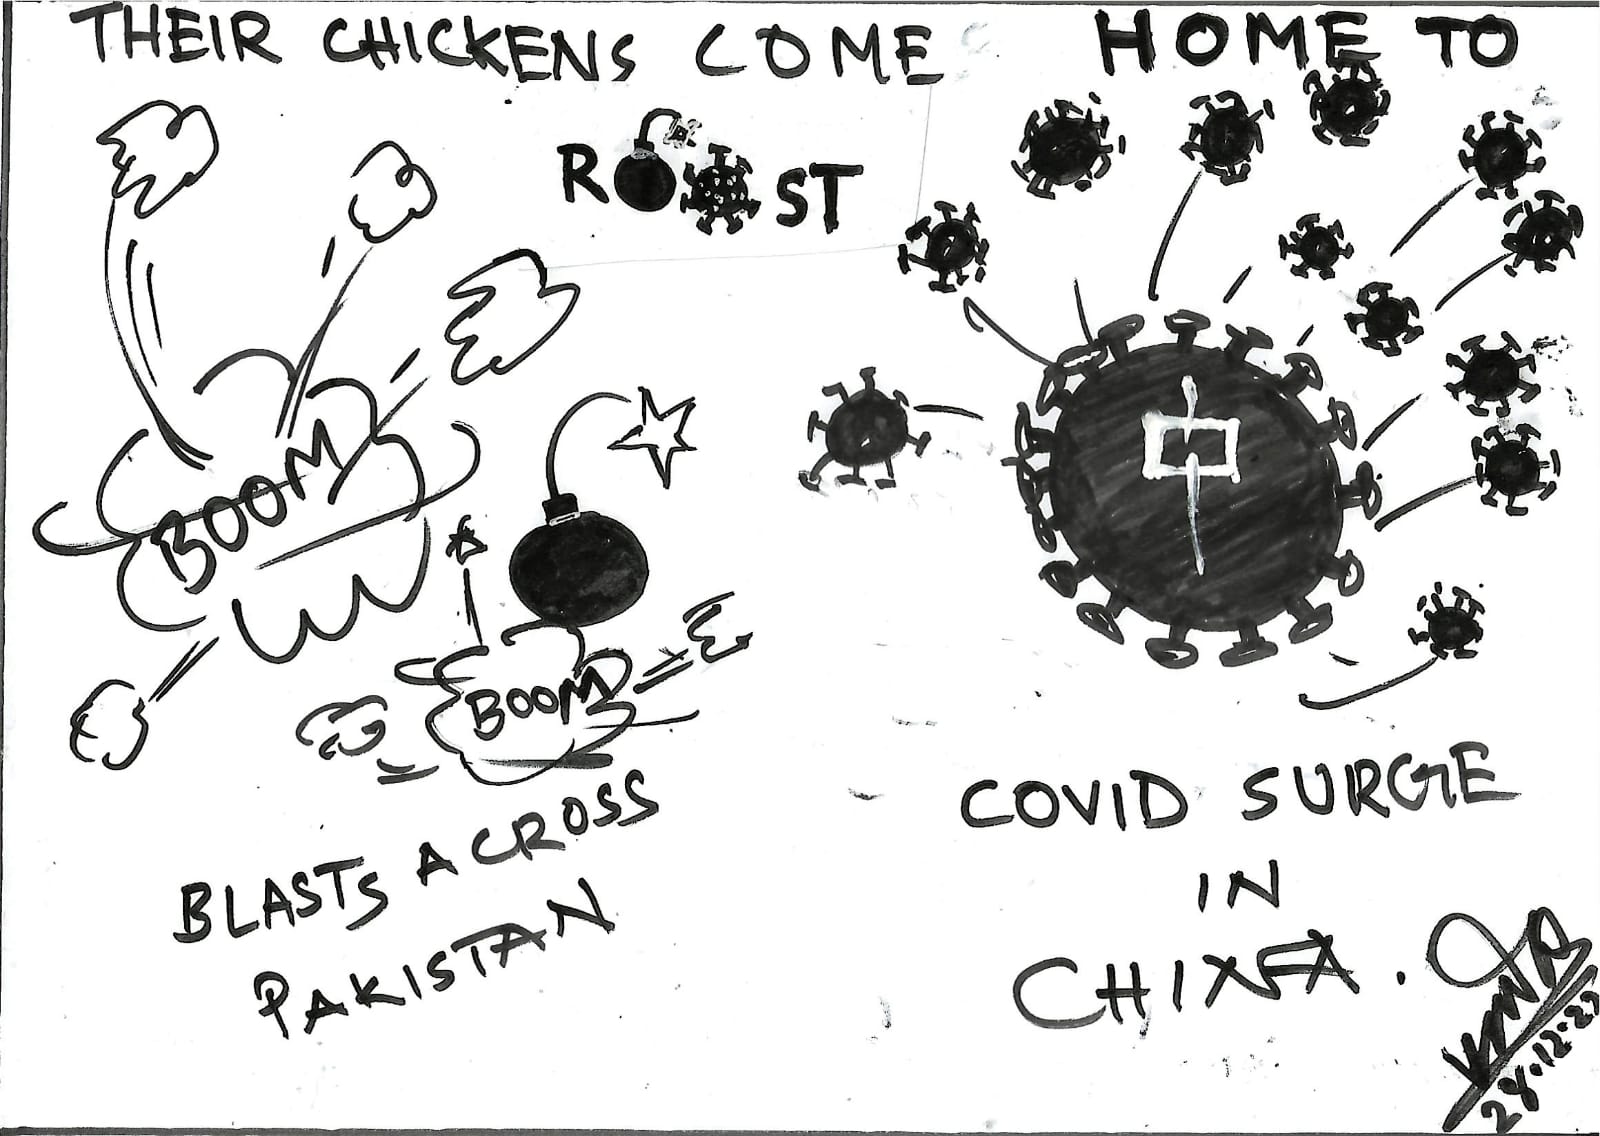 THEIR CHICKENS COME HOME TO
ROOST
BOOM
BOOM
中
BLASTS ACROSS
PAKISTAN
COVID SURGE
IN
CHINA.